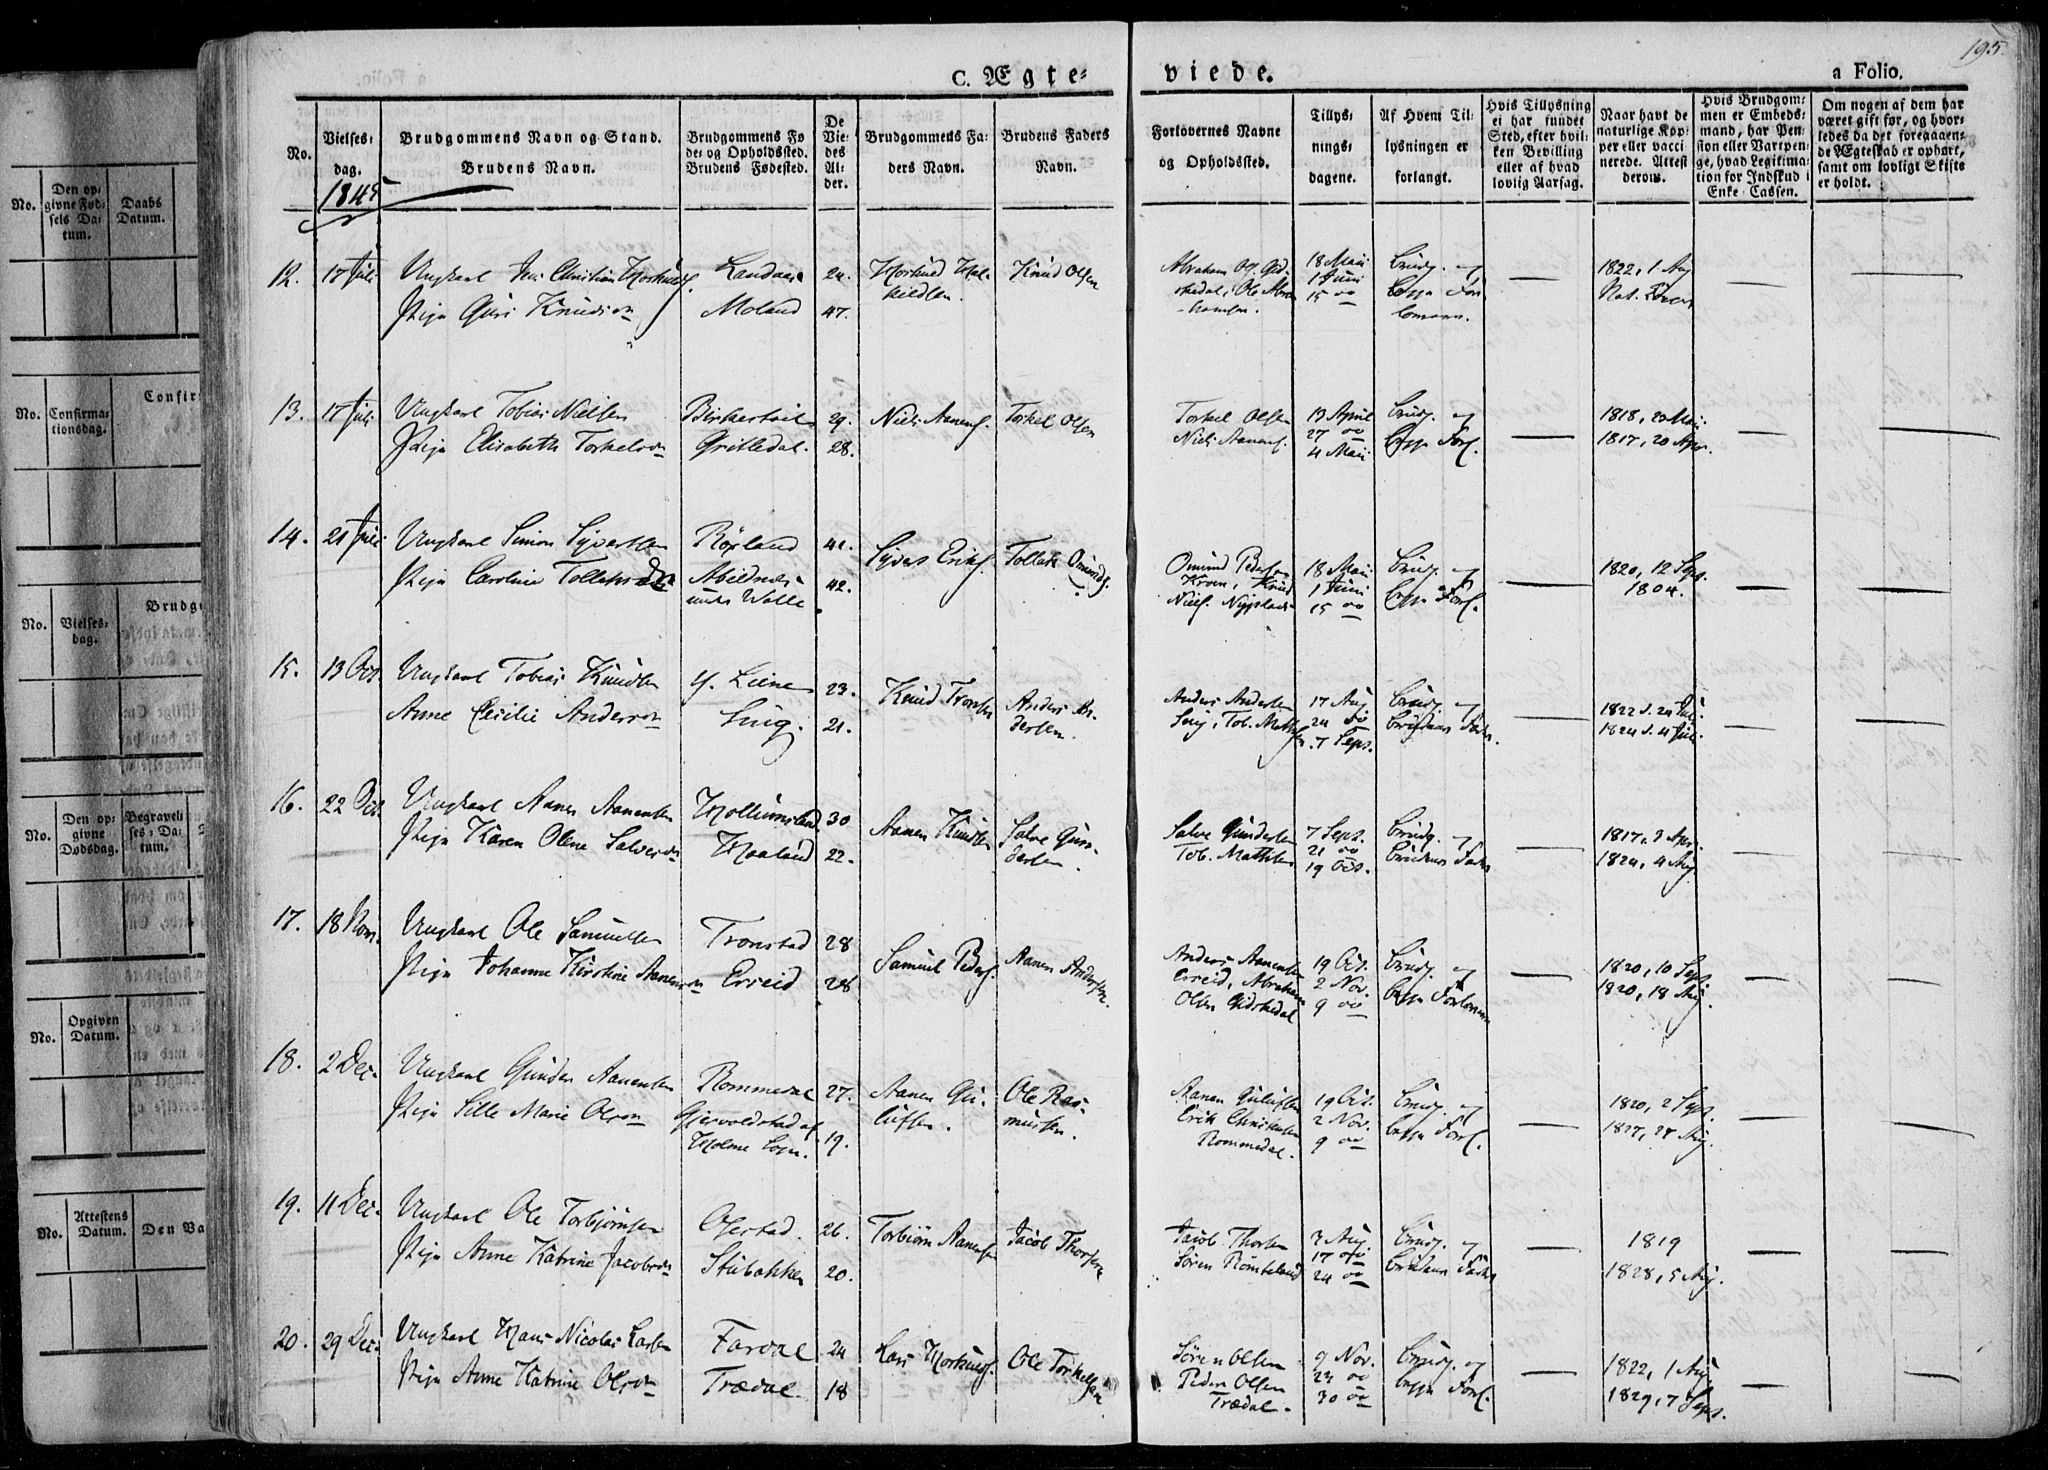 195.
C. Ægte-
viede.
a Folio.
No.
Vielses-
dag.
1845
Brudgommens Navn og Stand.
Brudens Navn.
Brudgommens Fø
de- og Opholdssted.
Brudens Fødested.
De
Vie-
des
Al-
der.
Brudgommens Fa-
ders Navn.
Brudens Faders
Navn.
Forlovernes Navne
og Opholdsted.
Tillys-
nings-
dagene.
Af Hvem Til-
lysningen er
forlangt.
Hvis Tillysning
ei har fundet
Sted, efter hvil-
ken Bevilling
eller af hvad
lovlig Aarsag.
Naar havt de
naturlige Kop-
per eller vacci
nerede. Attest
derom.
Hvis Brudgom-
men er Embeds-
mand, har Pen-
sion eller Vartpen-
ge, hvad Legitima-
tion for Indskud i
Enke-Cassen.
Om nogen af dem har
været gift før, og hvor-
ledes da det foregaaen-
de Ægteskab er ophørt,
samt om lovligt Skifte
er holdt.
12. 17 Juli Ungkarl Jens Christian
Pige Guri Knudsdn
Moland
24.
47.
Knud Olsen
Abraham Ols. Gid-
skedal, Ole Abra-
hamsen
18 Mai
1 Juni
15 oo
Brudg. og
1822, 1 Aug
13. 17 Juli Ungkarl Tobias Nielsen
Pige Elisabeth Torkelsdn
Birkestøil
Gritledal.
29.
28.
Niels Aanens.
Torkel Olsen
Torkel Olsen
Niels Aanens.
13 April
27 oo
4 Mai
Brudg. og
begge Forl.
1818, 20 Mai
1817, 20 Apr.
14. 21 Juli Ungkarl Simon Syvertsen
Pige Caroline Tollaksdn
Røsland
Abildnæs
under Walle
41.
42.
Syvert Eriks.
Tollak Omunds.
Omund Pedersen
Kroen, Knud
Niels.
18 Mai
1 Juni
15 oo
Brudg. og
begge Forl.
1820, 12 Sept.
1804.
15. 13 Oct. Ungkarl Tobias Knudsen
Anne Cecilie Andersdn
Y. Liene
Ling.
23.
21.
Knud Tronsen
Anders An-
dersen.
Anders Andersen
Ling, Tob. Mathsen
17 Aug.
24 oo
7 Sept.
Brudg. og
Brudens Fader.
1822 d. 24 Juli
1824 d. 4 Juli.
16. 22 Oct. Ungkarl Aanen Aanensen
Pige Karen Olene Salvesdn
Hollumsland
Haaland
30
22.
Aanen Knudsen
Salve Gun-
dersen.
Salve Gundersen
Tob. Mathsen
7 Sept.
21 oo
19 Oct.
Brudg. og
Brudens Fader
1817, 3 Apr.
1824, 4 Aug.
17. 18 Nov. Ungkarl Ole Samuelsen
Pige Johanne Kirstine Aanensdn
Tronstad
Erreid
28
28
Samuel Peders.
Aanen Andersen.
Anders Aanensen
Erreid, Abraham
Olsen Gidskedal
19 Oct.
2 Nov.
9 oo
Brudg. og
begge Forlovere
1820, 10 Sept.
1820, 18 Aug.
18. 2 Dec. Ungkarl Gunder Aanensen
Pige Sille Marie Olsdn
Rommedal
Gjervoldstad af
Holme Sogn.
27.
19.
Aanen Gu-
lufsen.
Ole Ras-
mussen.
Aanen Gulufsen
Erik Christensen
Rommedal.
19 Oct.
2 Nov.
9 oo
Brudg. og
begge Forl.
1820, 2 Sept.
1827, 27 Aug.
19. 11 Dec. Ungkarl Ole Torbjørnsen
Pige Anne Katrine Jacobsdn
Øierstad.
Stubakken
26.
20.
Torbiørn Aanensen
Jacob Thorsen
Jacob Thorsen
Søren Romseland
3 Aug.
17 oo
24 oo
Brudg. og
Brudens Fader
1819
1828, 5 Aug.
20. 29 Dec. Ungkarl Hans Nicolai Larsen
Pige Anne Katrine Olsdn
Fardal
Trædal
24
18
Lars
Ole Torkelsen
Søren Olsen
Peder Olsen
Trædal.
9 Nov.
23 oo
30 oo
Brudg. og
begge Forl.
1822, 1 Aug.
1829, 7 Sept.
No.
Den op-
givne Fød-
sels Da-
tum.
Daabs
Datum.
No.
Confirma-
tionsdag.
Confir
No.
Vielses-
dag.
Brudg
No.
Den op-
givne
Dødsdag.
Begravel-
ses-Da-
tum.
No.
Opgiven
Datum.
No.
Attestens
Datum.
Den Va